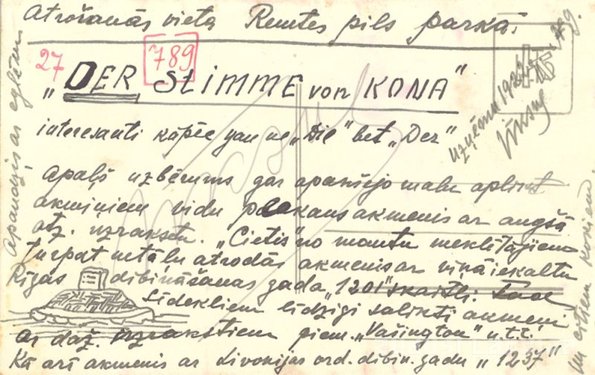 Atrošanās vieta Remtes pils parkā.
27
789
"DER StiMME von KONA"
interesanti kāpēc jau ne "Die" bet "Der"
Apaļš uzbērums gar apakšējo malu aplikt
akmiņiem vidū pelēkans akmenis ar augšā
atz. uzrakstu. "Cietis" no mantu meklētājiem
Turpat netālu atrodās akmenis ar viņā iekaltu
Rīgas dibināšanas gada "1201" skaitli.
līdzīgi salikti akmeņi
ar daž. uzrakstiem piem. "Vašington" u.t.t.
Kā arī akmenis ar Livonijas ord. dibin. gadu "1237"
Apaudzis ar eglēm
un citiem kokiem.
uzņēmu